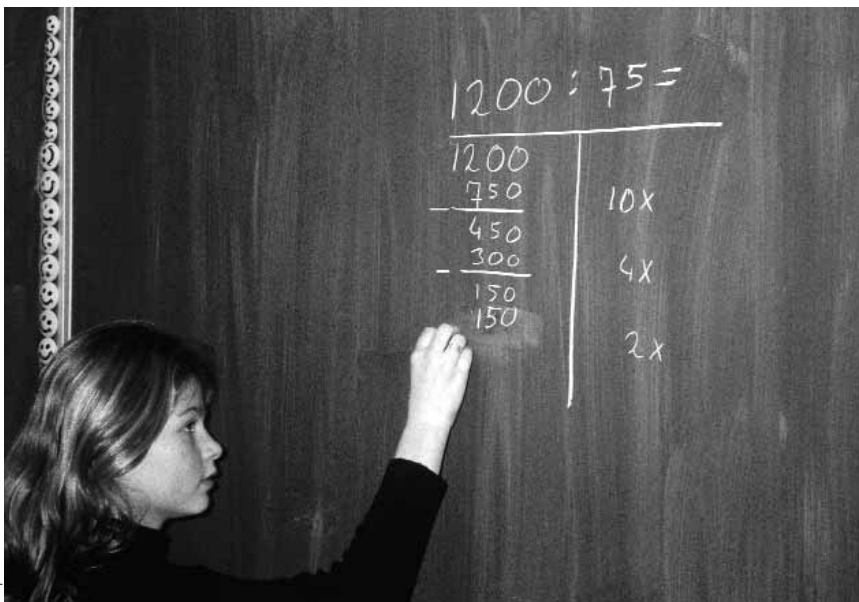 1200 : 75 =
1200
750 10x
- 
450
300 4x
- 
150
150
2x